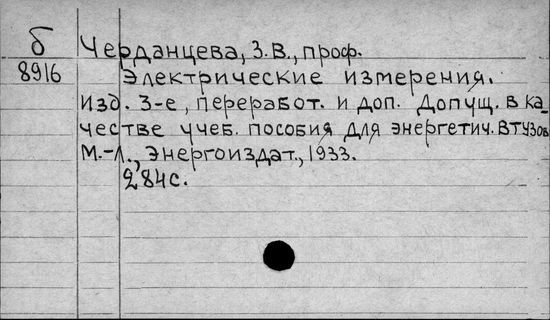 б Черданцева, З.В., проф.
8916 Электрические измерения.
Изд. 3-е, переработ. и доп. Допущ. в ка-
честве учеб. пособия для энергетич. втузов
М.-Л., Энергоиздат., 1933.
284с.